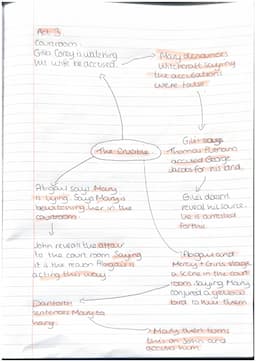 Act 3
Courtroom
Giles Corey is watching
his wife be accused.
Mary denounces
Witchcraft saying
the accusations
were false
Giles says
Thomas Putnam
accused George
Jacobs for his land.
The Crucible
Giles doesn't
reveal his source.
He is arrested
for this
Abigail says Mary
is lying. Says Mary is
bewitching her in the
courtroom
John reveals the affair
to the court room saying
it is the reason Abigail is
acting this way
Abigail and
Mercy + Girls stage
a scene in the court
room saying Mary
conjured a
bird to hurt them
Danforth
sentences Mary to
hang.
Mary then turns
lies on John and
accuses him